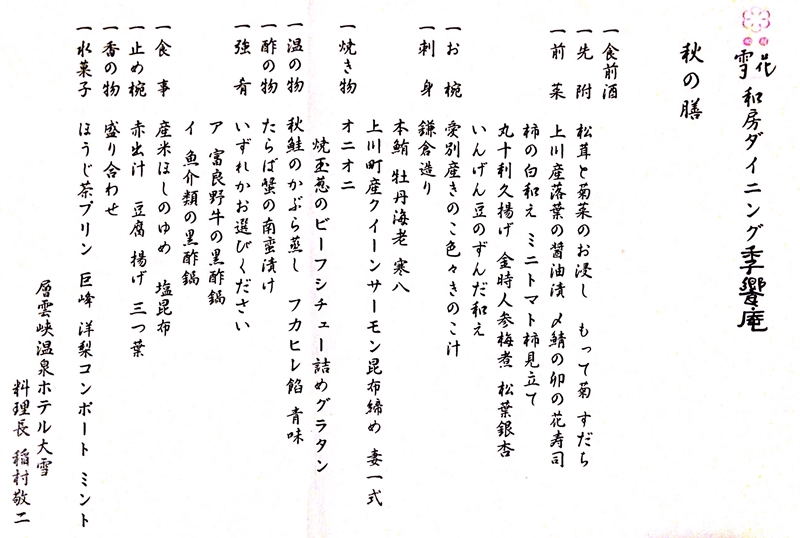 雪花 和房ダイニング季饗庵
秋の膳
一食前酒
一先 附 松茸と菊菜のお浸し もって菊 すだち
一前 菜 上川産落葉の醤油漬 〆鯖の卯の花寿司
柿の白和え ミニトマト柿見立て
丸十利久揚げ 金時人参梅煮 松葉銀杏
いんげん豆のずんだ和え
一お 椀 愛別産きのこ色々きのこ汁
一刺 身 鎌倉造り
本鮪 牡丹海老 寒八
上川町産クイーンサーモン昆布締め 妻一式
一焼き物 オニオニ
焼玉葱のビーフシチュー詰めグラタン
一温の物 秋鮭のかぶら蒸し フカヒレ餡 青味
一酢の物 たらば蟹の南蛮漬け
一強 肴 いずれかお選びください
ア 富良野牛の黒酢鍋
イ 魚介類の黒酢鍋
一食 事 産米ほしのゆめ 塩昆布
一止め椀 赤出汁 豆腐 揚げ 三つ葉
一香の物 盛り合わせ
一水菓子 ほうじ茶プリン 巨峰 洋梨コンポート ミント
層雲峡温泉ホテル大雪
料理長 稲村敬二